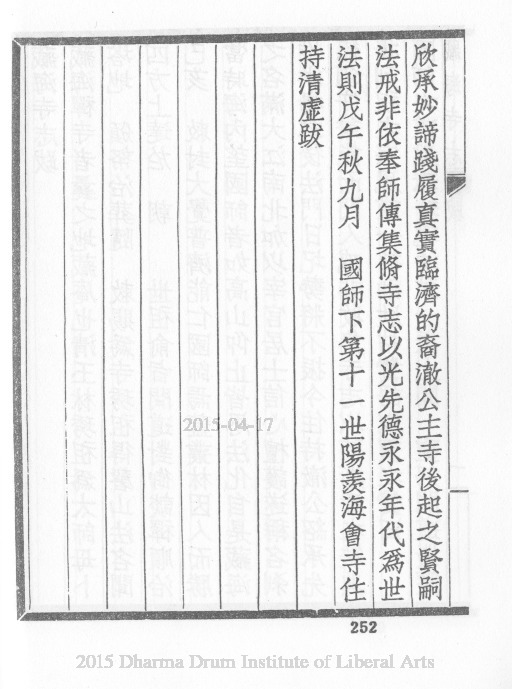 欣承妙諦踐履真實臨濟的裔澈公主寺後起之賢嗣
法戒非依奉師傳集脩寺志以光先德永永年代為世
法則戊午秋九月 國師下第十一世陽羨海會寺住
持清虛跋
2015-04-17
252
2015 Dharma Drum Institute of Liberal Arts